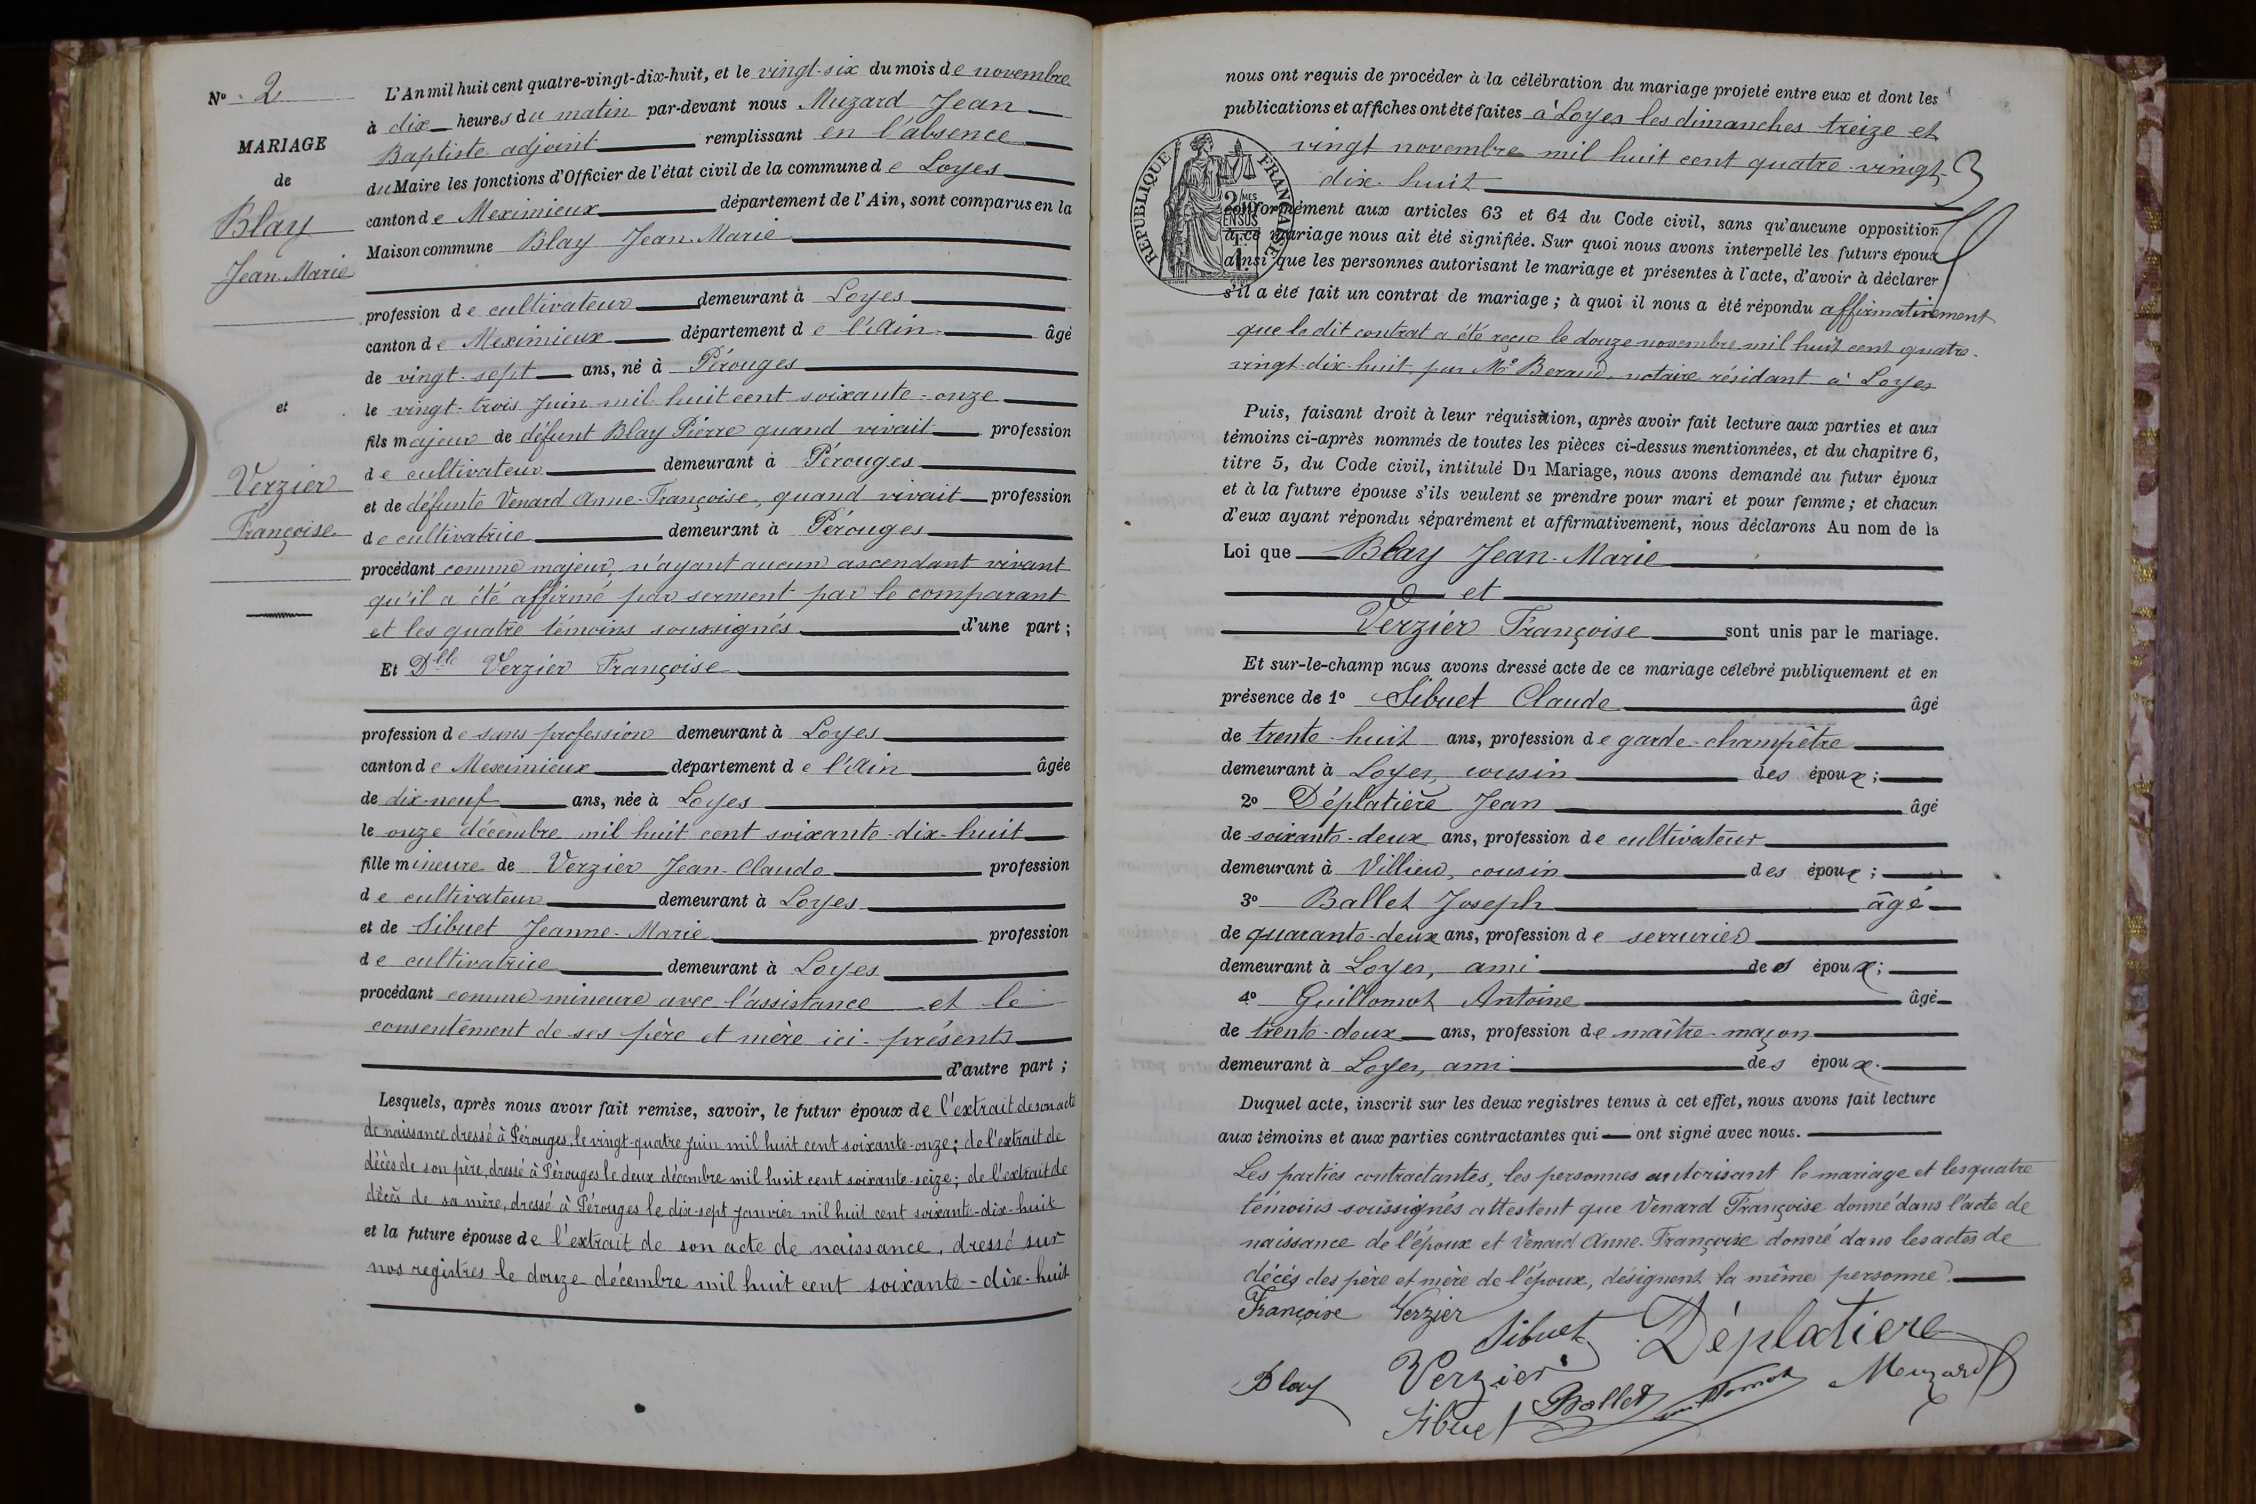 N° 2
MARIAGE
de
Blay
Jean Marie
et
Verzier
Françoise
L'An mil huit cent quatre-vingt-dix-huit, et le vingt-six du mois de novembre
à dix heures du matin par-devant nous Muzard Jean
Baptiste adjoint remplissant en l'absence
du Maire les fonctions d'Officier de l'état civil de la commune de Loyes
canton de Meximieux département de l'Ain, sont comparus en la
Maison commune Blay Jean Marie
profession de cultivateur demeurant à Loyes
canton de Meximieux département de l'Ain âgé
de vingt-sept ans, né à Pérouges
le vingt-trois Juin mil huit cent soixante-onze
fils majeur de défunt Blay Pierre quand vivait profession
de cultivateur demeurant à Pérouges
et de défunte Venard Anne-Françoise, quand vivait profession
de cultivatrice demeurant à Pérouges
procédant comme majeur, n'ayant aucun ascendant vivant
qu'il a été affirmé par serment par le comparant
et les quatre témoins soussignés d'une part ;
Et Dlle Verzier Françoise
profession de sans profession demeurant à Loyes
canton de Meximieux département de l'Ain âgée
de dix-neuf ans, née à Loyes
le onze décembre mil huit cent soixante-dix-huit
fille mineure de Verzier Jean-Claude profession
de cultivateur demeurant à Loyes
et de Sibuet Jeanne-Marie profession
de cultivatrice demeurant à Loyes
procédant comme mineure avec l'assistance et le
consentement de ses père et mère ici-présents
d'autre part ;
Lesquels, après nous avoir fait remise, savoir, le futur époux de l'extrait de son acte
de naissance dressé à Pérouges, le vingt-quatre Juin mil huit cent soixante-onze ; de l'extrait de
décès de son père, dressé à Pérouges le deux décembre mil huit cent soixante-seize ; de l'extrait de
décès de sa mère, dressé à Pérouges le dix-sept Janvier mil huit cent soixante-dix-huit
et la future épouse de l'extrait de son acte de naissance, dressé sur
nos registres le douze décembre mil huit cent soixante-dix-huit
nous ont requis de procéder à la célébration du mariage projeté entre eux et dont les
publications et affiches ont été faites à Loyes les dimanches treize et
vingt novembre mil huit cent quatre-vingt-
dix-huit
RÉPUBLIQUE FRANÇAISE
conformément aux articles 63 et 64 du Code civil, sans qu'aucune opposition
à ce mariage nous ait été signifiée. Sur quoi nous avons interpellé les futurs époux
ainsi que les personnes autorisant le mariage et présentes à l'acte, d'avoir à déclarer
s'il a été fait un contrat de mariage ; à quoi il nous a été répondu affirmativement
que le dit contrat a été reçu le douze novembre mil huit cent quatre-
vingt-dix-huit par Me Beraud, notaire résidant à Loyes
Puis, faisant droit à leur réquisition, après avoir fait lecture aux parties et aux
témoins ci-après nommés de toutes les pièces ci-dessus mentionnées, et du chapitre 6,
titre 5, du Code civil, intitulé Du Mariage, nous avons demandé au futur époux
et à la future épouse s'ils veulent se prendre pour mari et pour femme ; et chacun
d'eux ayant répondu séparément et affirmativement, nous déclarons Au nom de la
Loi que Blay Jean-Marie
et
Verzier Françoise sont unis par le mariage.
Et sur-le-champ nous avons dressé acte de ce mariage célébré publiquement et en
présence de 1° Sibuet Claude âgé
de trente-huit ans, profession de garde-champêtre
demeurant à Loyes, cousin des époux ;
2° Déplatière Jean âgé
de soixante-deux ans, profession de cultivateur
demeurant à Villieu, cousin des époux ;
3° Ballet Joseph âgé
de quarante-deux ans, profession de serrurier
demeurant à Loyes, ami des époux ;
4° Guillomot Antoine âgé
de trente-deux ans, profession de maître-maçon
demeurant à Loyes, ami des époux.
Duquel acte, inscrit sur les deux registres tenus à cet effet, nous avons fait lecture
aux témoins et aux parties contractantes qui ont signé avec nous.
Les parties contractantes, les personnes autorisant le mariage et les quatre
témoins soussignés attestent que Venard Françoise donné dans l'acte de
naissance de l'époux et Venard Anne-Françoise donné dans les actes de
décès des père et mère de l'époux, désignent la même personne.
Françoise Verzier
Sibuet Déplatiere
Blay Verzier Ballet Guillomot Muzard
Sibuet